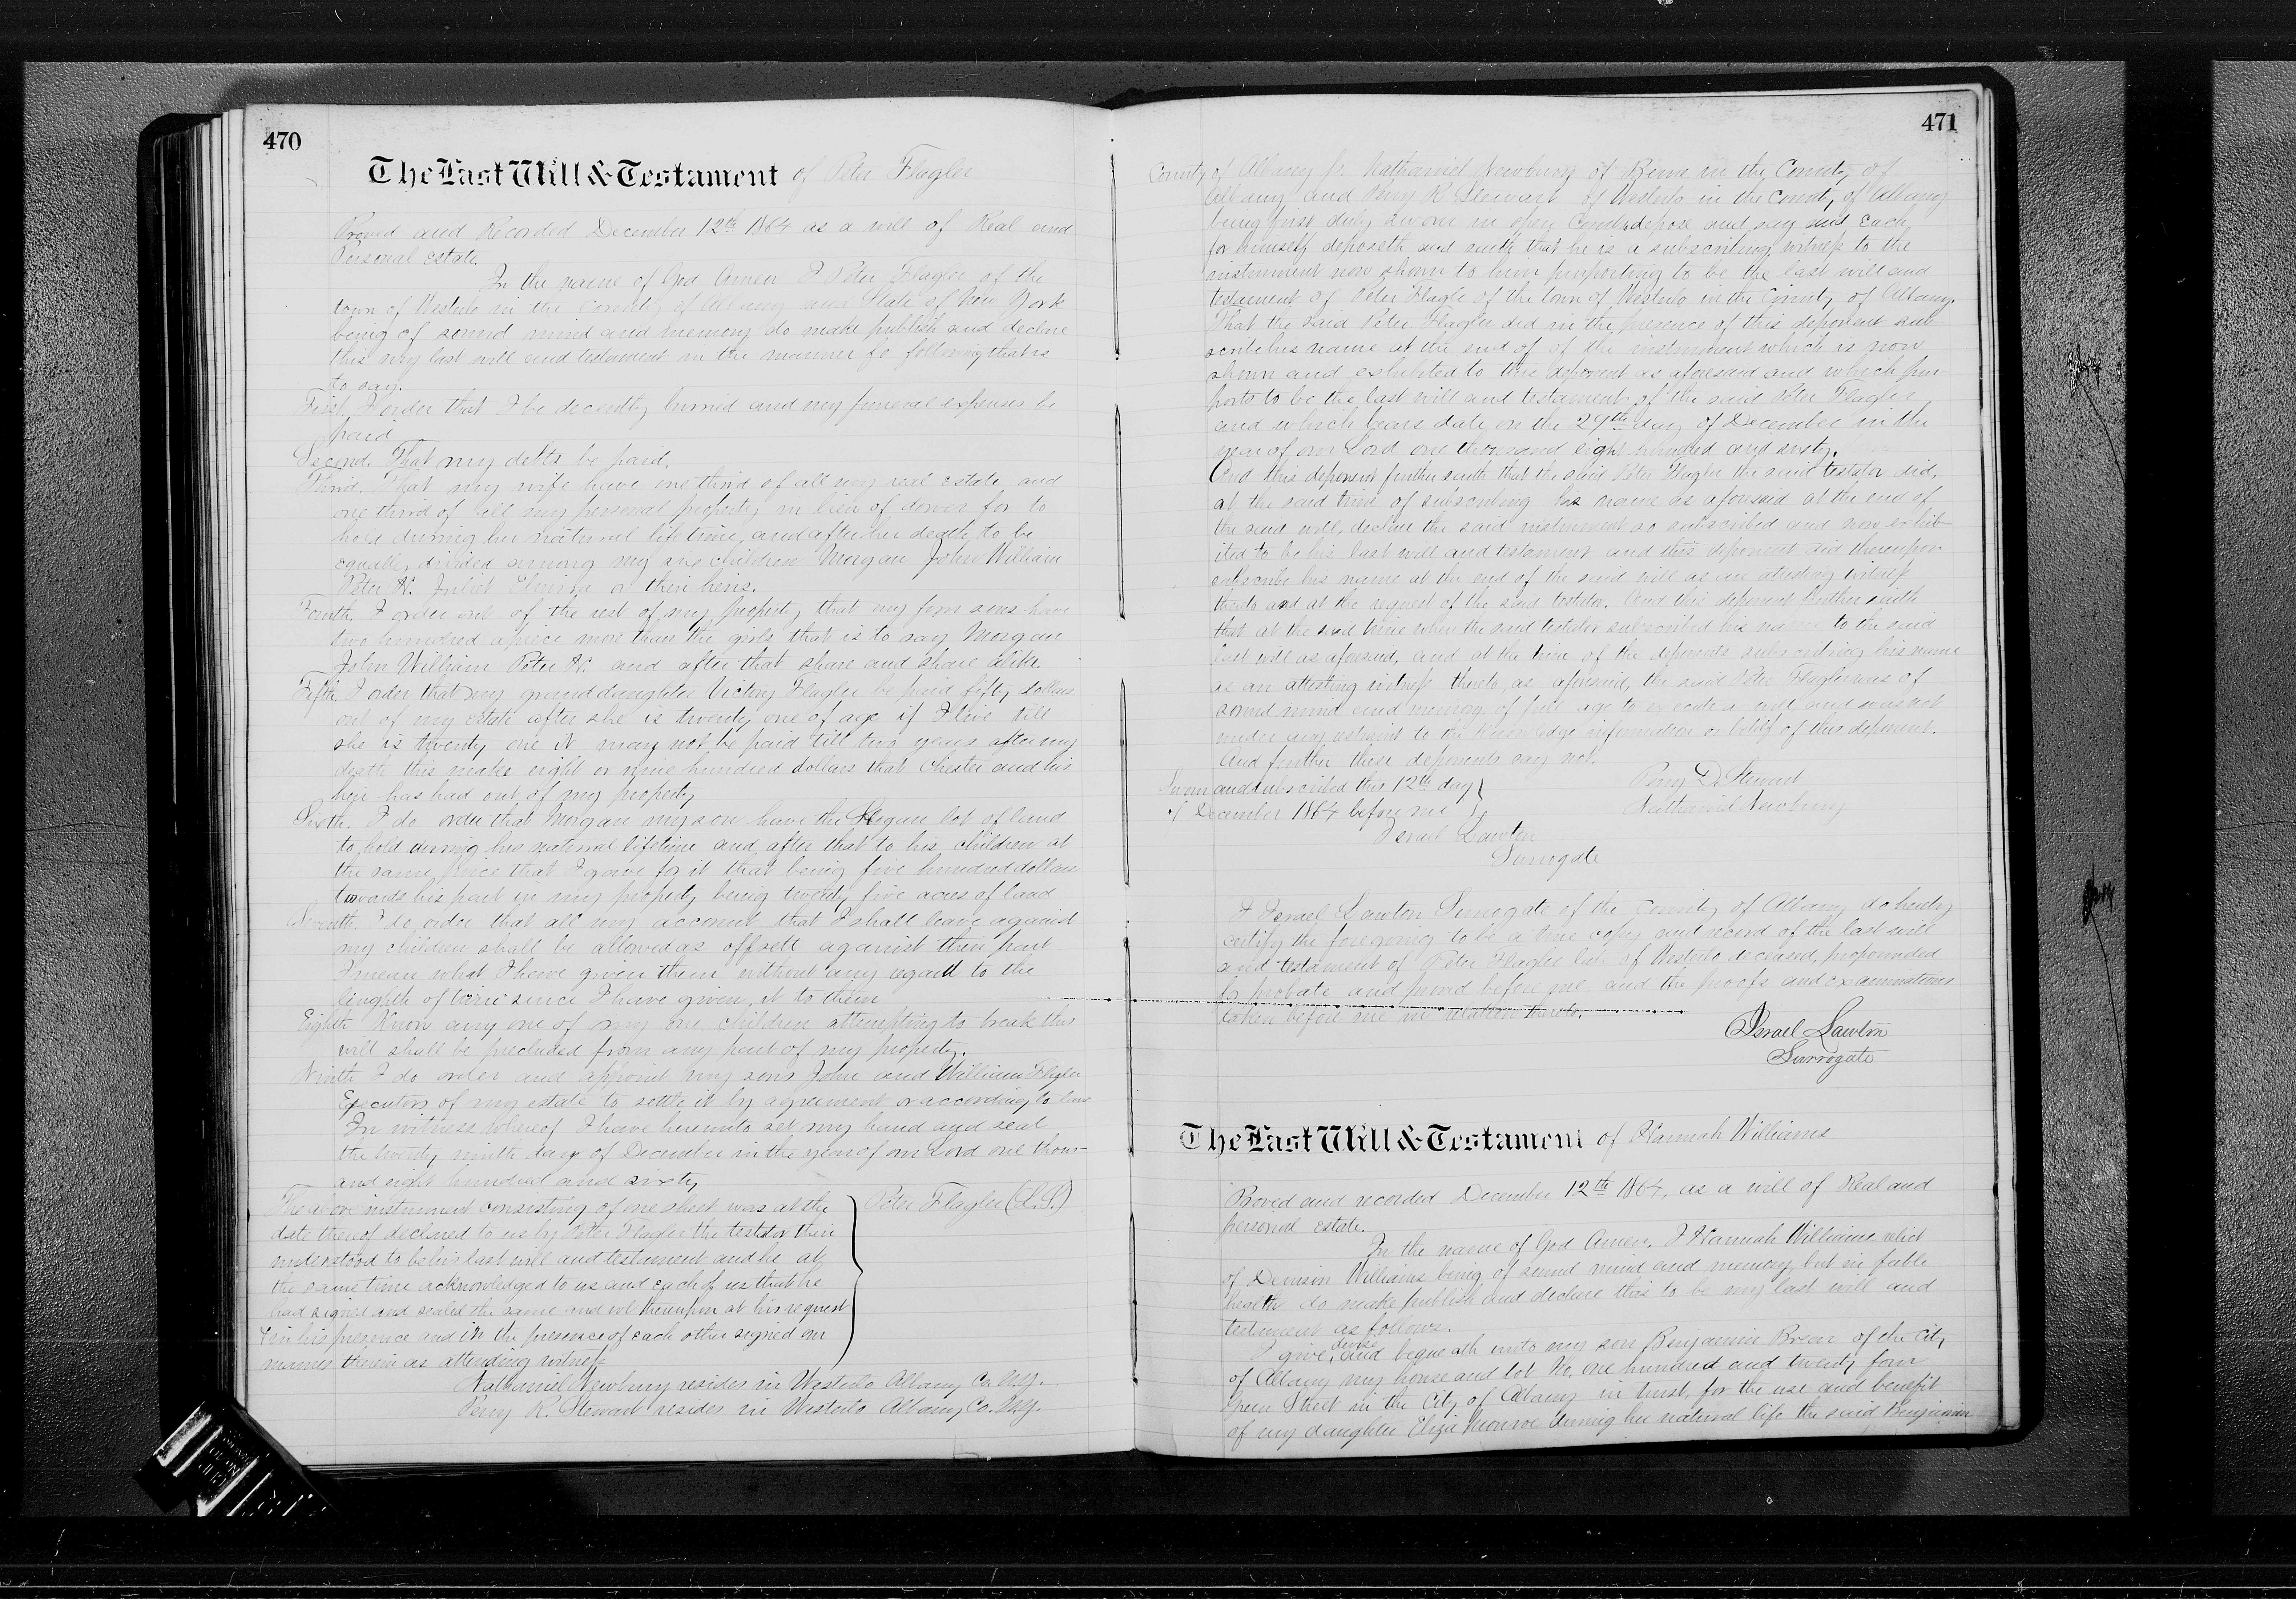 470
The Last Will & Testament of Peter Flagler
Proved and Recorded December 12th 1864 as a will of Real and
Personal estate.
In the name of God Amen I Peter Flagler of the
town of Westerlo in the County of Albany and State of New York
being of sound mind and memory do make publish and declare
this my last will and testament in the manner fo following that is
to say.
First. I order that I be decently burried and my funeral expenses be
paid
Second. That my debts be paid.
Third. That my wife have one third of all my real estate and
one third of all my personal property in lieu of dower for to
hold during her natural lifetime, and after her death to be
equally divided among my six children Morgan John William
Peter N. Juliet or their heirs.
Fourth. I order out of the rest of my property that my four sons have
two hundred apiece more than the girls that is to say Morgan
John William Peter N. and after that share and share alike.
Fifth. I order that my granddaughter Victory Flagler be paid fifty dollars
out of my estate after she is twenty one of age if I live till
she is twenty one it may not be paid till two years after my
death this make eight or nine hundred dollars that Chester and his
heir has had out of my property
Sixth. I do order that Morgan my son have the lot of land
to hold during his natural lifetime and after that to his children at
the same price that I gave for it that being five hundred dollars
towards his part in my property being twenty five acres of land
Seventh. I do order that all my account that I shall leave against
my children shall be allowed as offsett against their part
I mean what I have given them without any regard to the
lenghth of time since I have given it to them
Eighth Know any one of my one children attempting to break this
will shall be precluded from any part of my property.
Ninth I do order and appoint my sons John and William Flagler
Executors of my estate to settle it by agreement or according to law
In witness whereof I have hereunto set my hand and seal
the twenty ninth day of December in the year of our Lord one thous-
and eight hundred and sixty
The above instrument consisting of one sheet was at the
Peter Flagler (L.S.)
date thereof declared to us by Peter Flagler the testator their
understood to be his last will and testament and he at
the same time acknowledged to us and each of us that he
had signed and sealed the same and we thereupon at his request
& in his presence and in the presence of each other signed our
names therein as attending witness
Nathaniel Newbury resides in Westerlo Albany Co. N.Y.
Perry R. Stewart resides in Westerlo Albany Co. N.Y.
471
County of Albany ss. Nathaniel Newbury of Berne in the County of
Albany and Perry R Stewart of Westerlo in the County of Albany
being first duly sworn in open Court depose and say and each
for himself deposeth and saith that he is a subscribing witness to the
instrument now shown to him purporting to be the last will and
testament of Peter Flagle of the town of Westerlo in the County of Albany.
That the said Peter Flagler did in the presence of this deponent sub-
scribe his name at the end of of the instrument which is now
shown and exhibited to this deponent as aforesaid and which pur-
ports to be the last will and testament of the said Peter Flagler
and which bears date on the 29th day of December in the
year of our Lord one thousand eight hundred and sixty.
And this deponent further saith that the said Peter Flagler the said testator did,
at the said time of subscribing his name as aforesaid at the end of
the said will, declare the said instrument so subscribed and now exhib-
ited to be his last will and testament and this deponent did thereupon
subscribe his name at the end of the said will as an attesting witness
thereto and at the request of the said testator. And this deponent further saith
that at the said time when the said testator subscribed his name to the said
last will as aforesaid, and at the time of the deponents subscribing his name
as an attesting witness thereto, as aforesaid, the said Peter Flagler was of
sound mind and memory of full age to execute a will and was not
under any restraint to the knowledge information or belief of this deponent.
And further these deponents say not.
Sworn and subscribed this 12th day
of December 1864 before me
Perry D. Stewart
Nathaniel Newbury
Israel Lawton
Surrogate
I Israel Lawton Surrogate of the County of Albany do hereby
certify the foregoing to be a true copy and record of the last will
and testament of Peter Flagler late of Westerlo deceased, propounded
for probate and proved before me and the proofs and examinations
taken before me in relation thereto.
Israel Lawton
Surrogate
The Last Will & Testament of Hannah Williams
Proved and recorded December 12th 1864, as a will of Real and
personal estate.
In the name of God Amen. I Hannah Williams relict
of Denison Williams being of sound mind and memory but in feble
health do make publish and declare this to be my last will and
testament as follows.
I give, devise and bequeath unto my son Benjamin Brear of the City
of Albany my house and lot No. one hundred and twenty four
Green Street in the City of Albany in trust, for the use and benefit
of my daughter Eliza Monroe during her natural life the said Benjamin